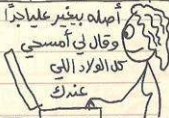 أصله بيغير عليا جدًا
وقال لي أمسحي
كل الولاد اللي
عندك